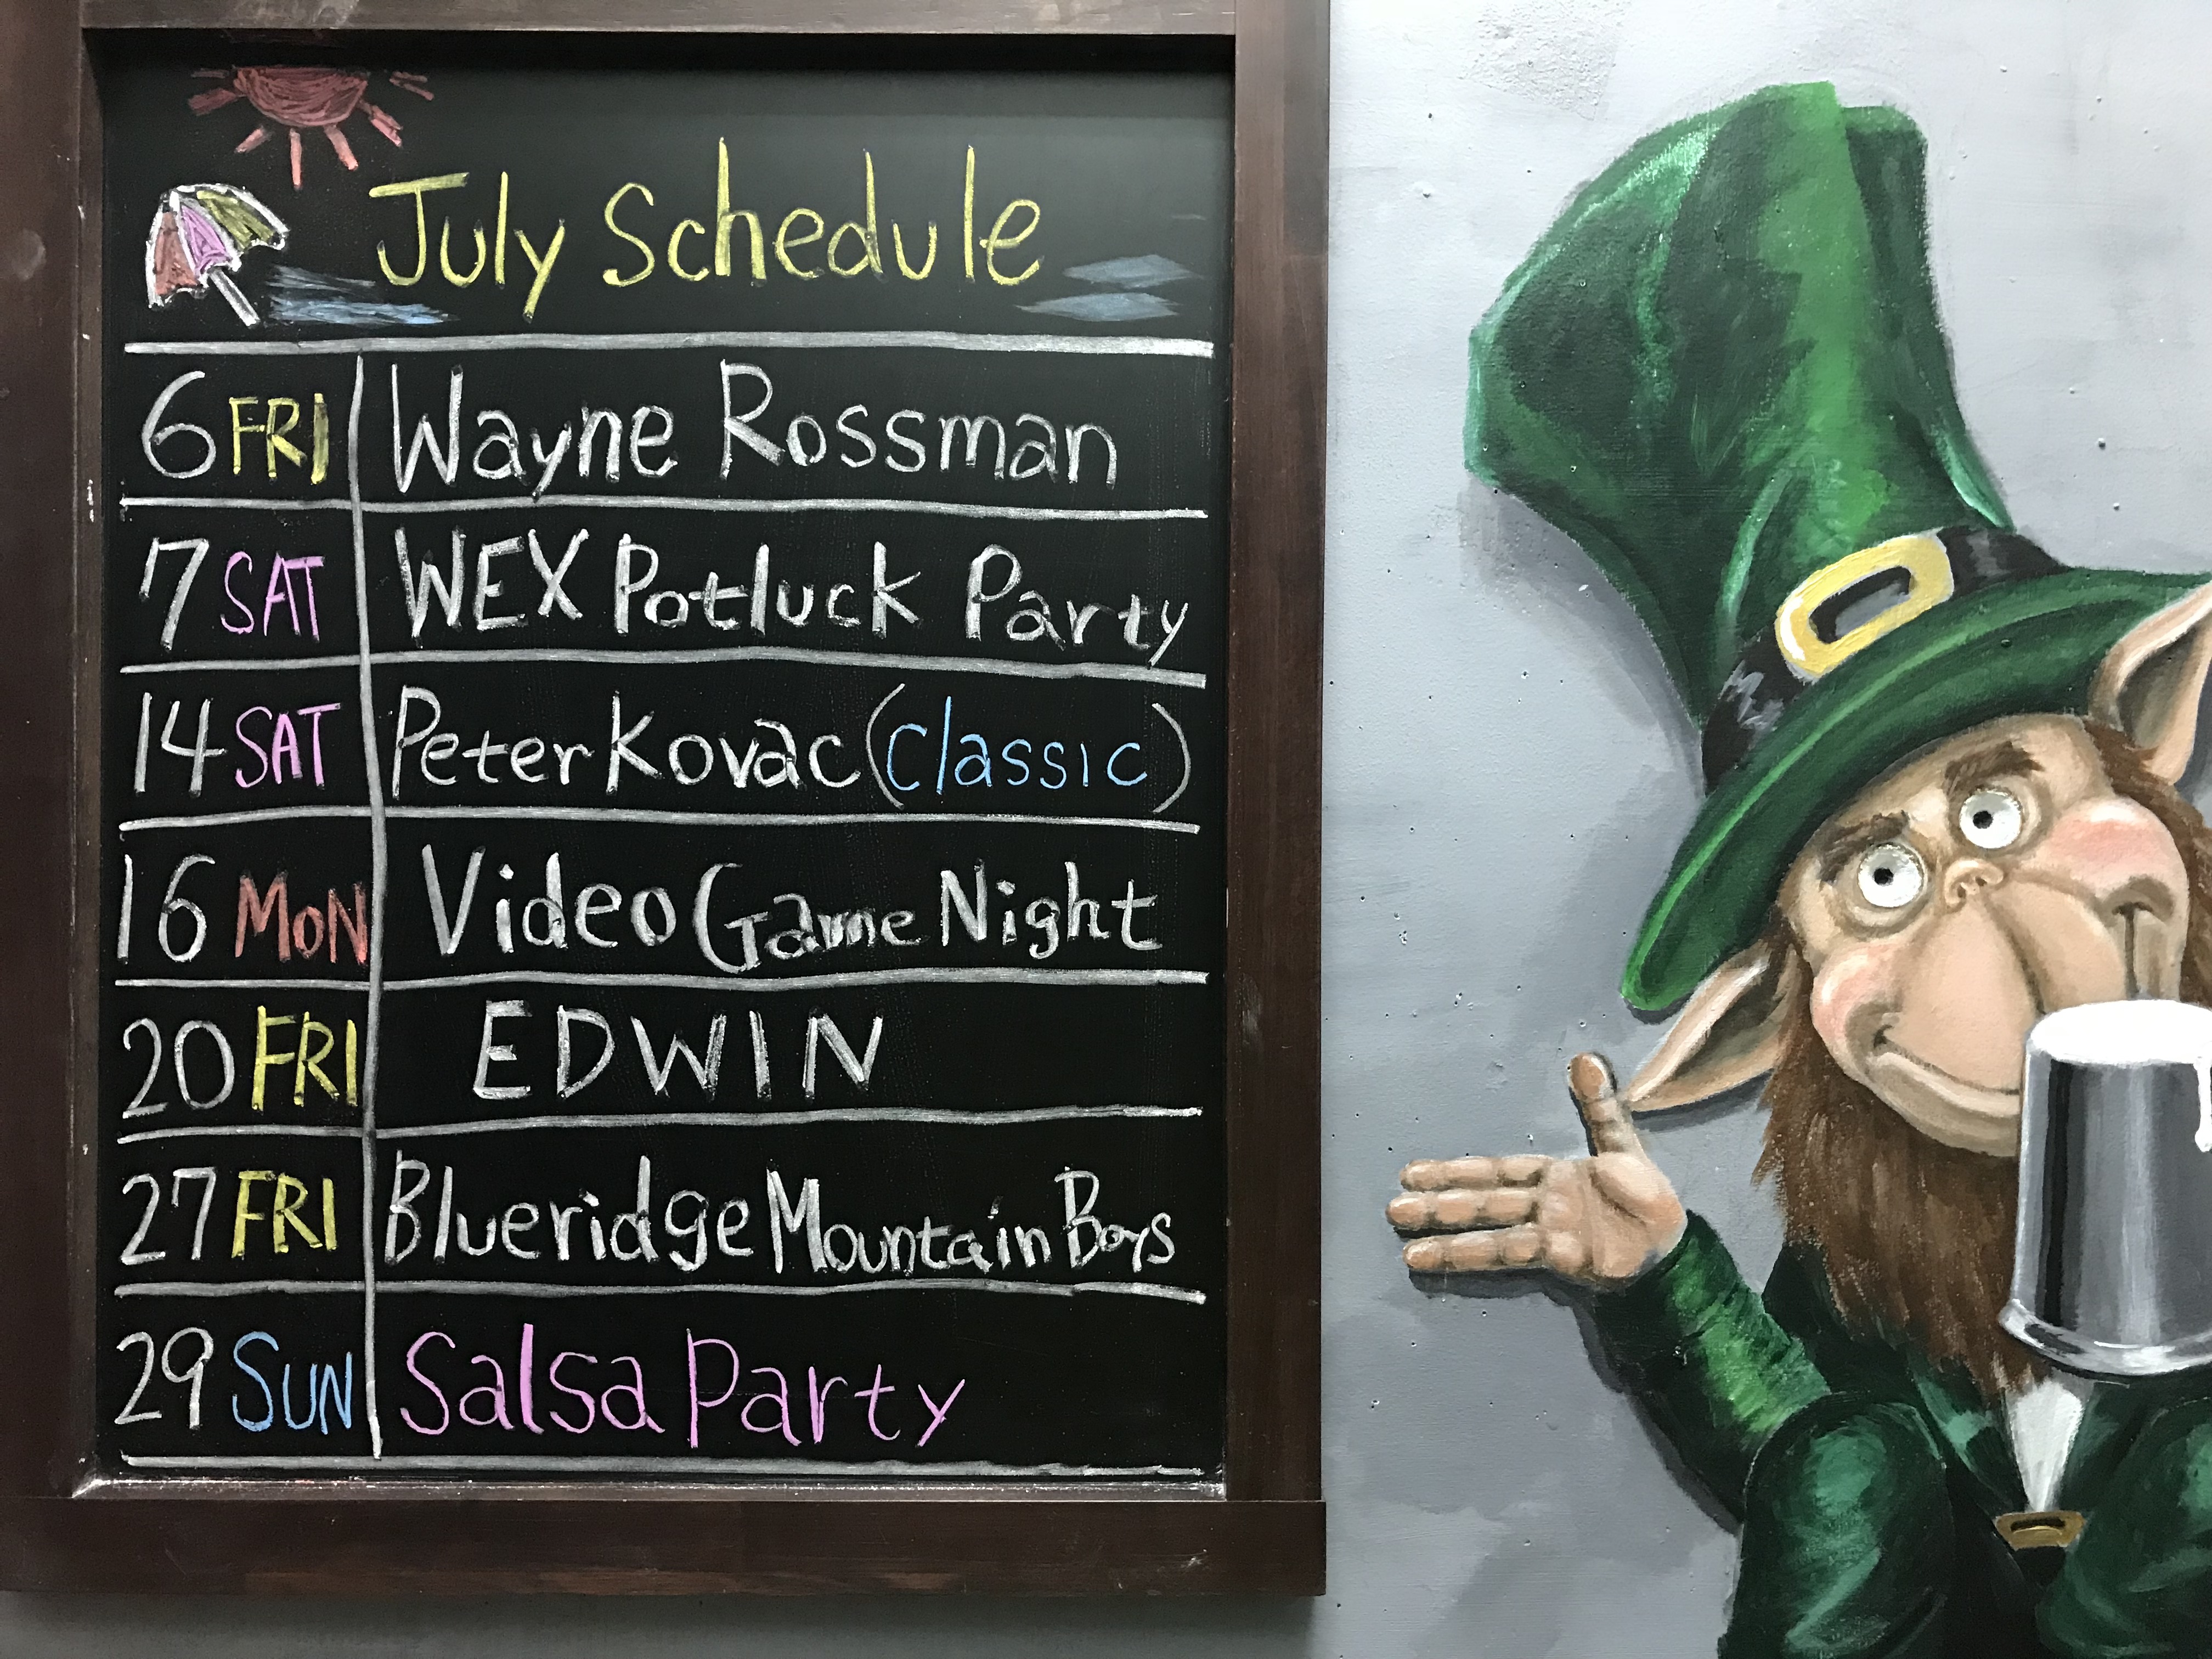 July Schedule
6 FRI Wayne Rossman
7 SAT WEX Potluck Party
14 SAT Peter Kovac (Classic)
16 MON Video Game Night
20 FRI EDWIN
27 FRI Blueridge Mountain Boys
29 SUN Salsa Party